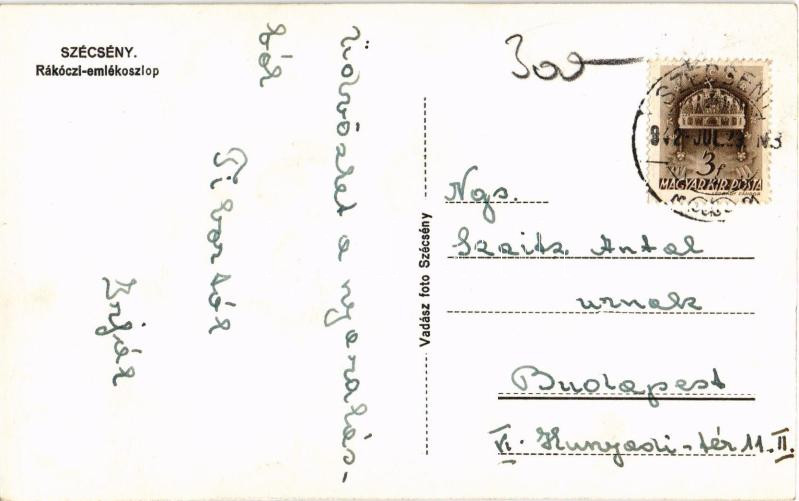 SZÉCSÉNY.
Rákóczi-emlékoszlop
Üdvözlet a nyaralás-
ból
Tibortól
Írják
Vadász foto Szécsény
300
SZÉCSÉNY
942 JUL. 23
3f
MAGYAR KIR. POSTA
Ngs.
Szaitz Antal
urnak
Budapest
VI. Hunyadi-tér 11. II.